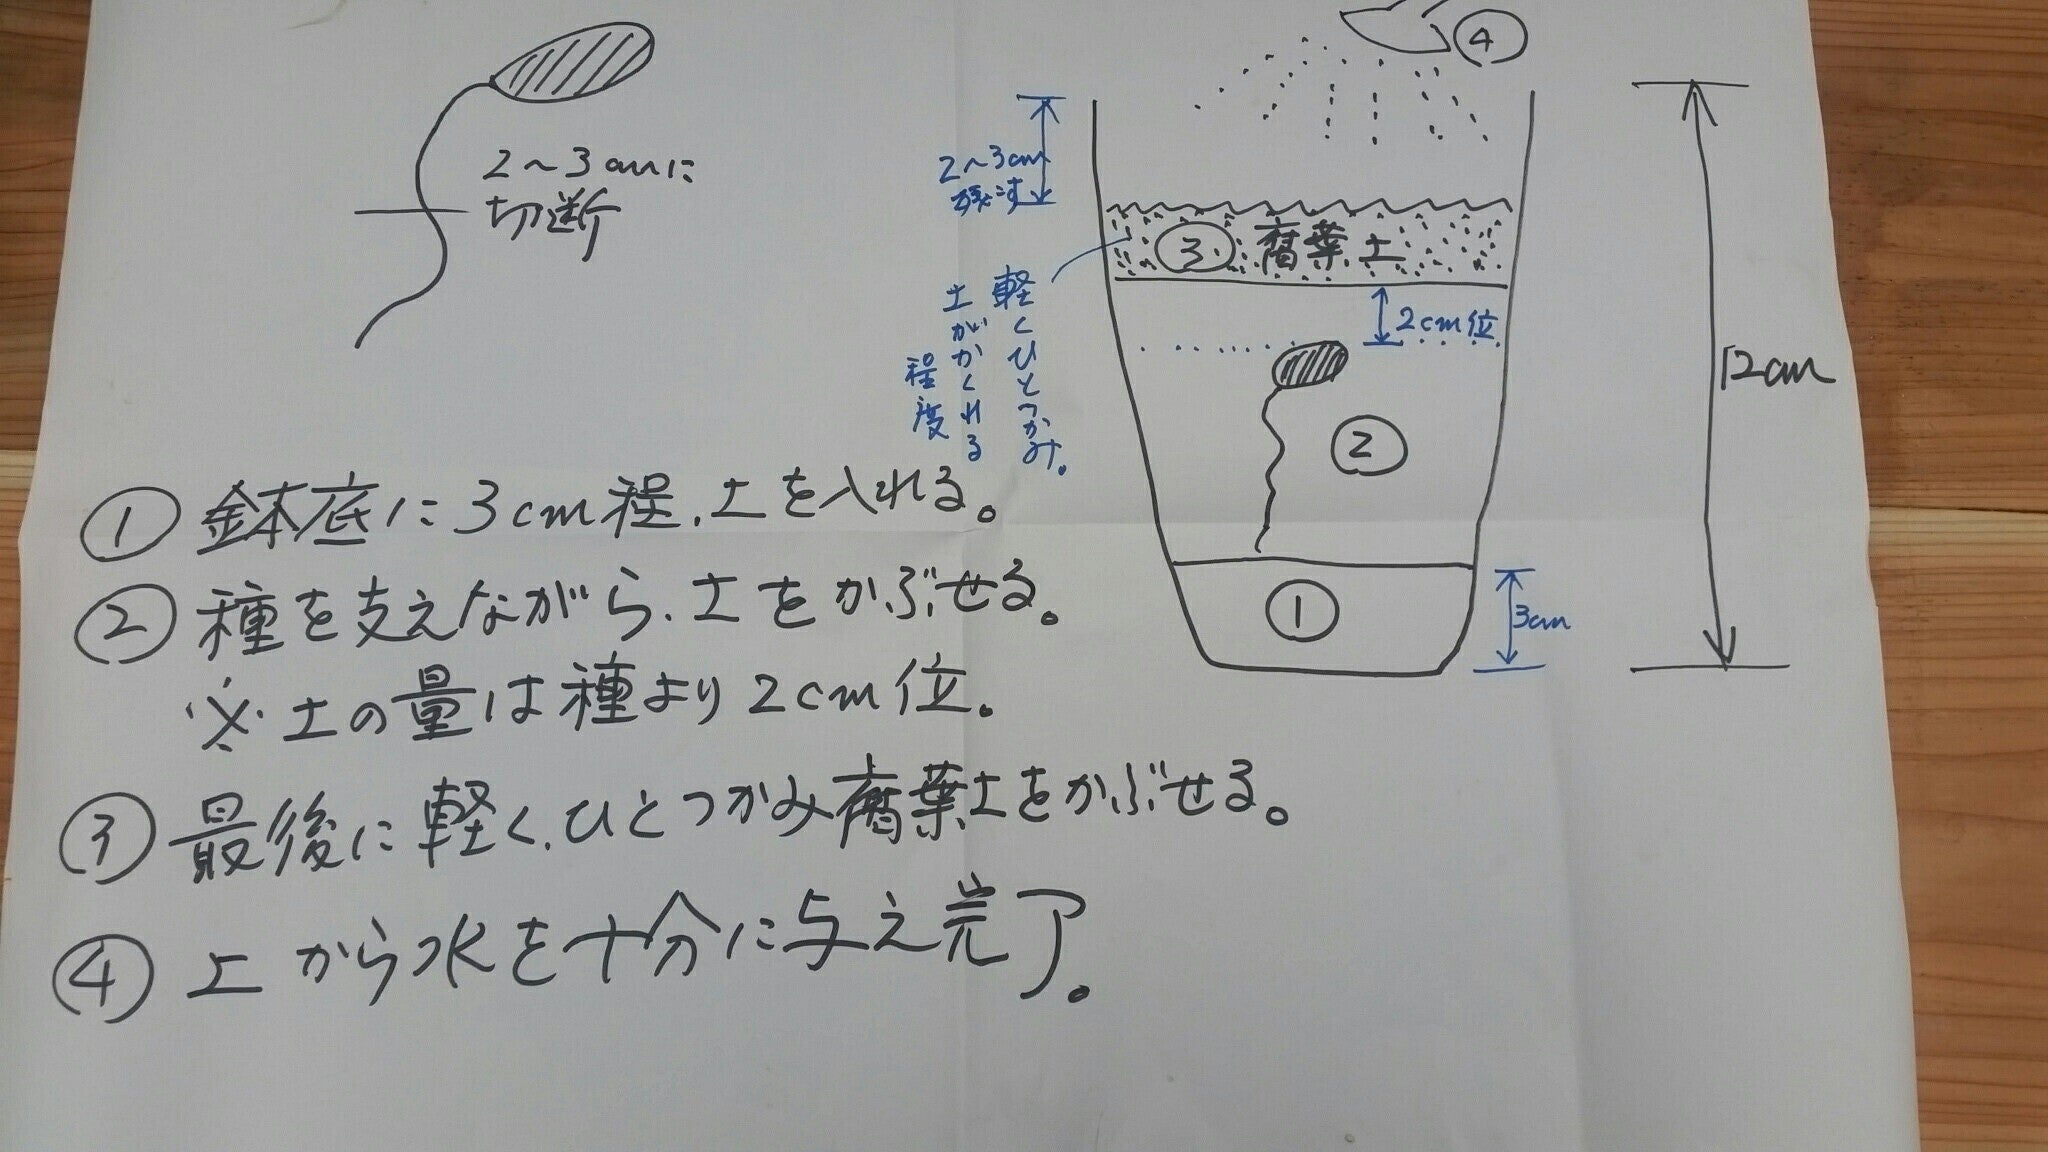 2～3cmに
切断
④
2～3cm
残す
③ 腐葉土
軽くひとつかみ。
土がかくれる
程度
2cm位
12cm
②
①
3cm
① 鉢底に3cm程、土を入れる。
② 種を支えながら、土をかぶせる。
※土の量は種より2cm位。
③ 最後に軽く、ひとつかみ腐葉土をかぶせる。
④ 上から水を十分に与え完了。